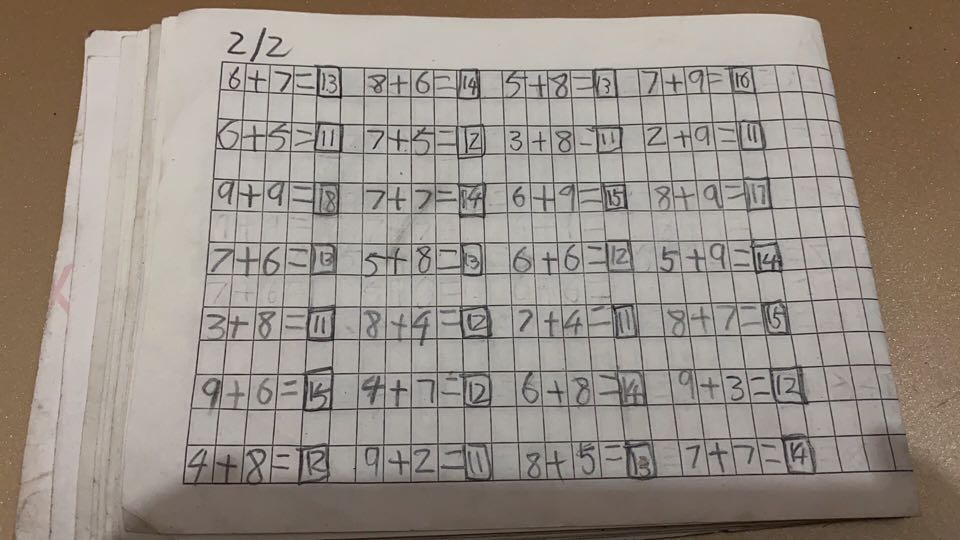 2/2
6+7=13 8+6=14 5+8=13 7+9=16
6+5=11 7+5=12 3+8=11 2+9=11
9+9=18 7+7=14 6+9=15 8+9=17
7+6=13 5+8=13 6+6=12 5+9=14
3+8=11 8+4=12 7+4=11 8+7=15
9+6=15 4+7=12 6+8=14 9+3=12
4+8=12 9+2=11 8+5=13 7+7=14